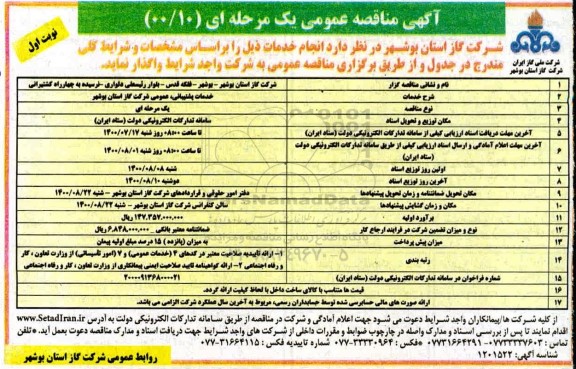 آگهی مناقصه عمومی یک مرحله ای (۰۰/۱۰)
نوبت اول
شرکت ملی گاز ایران
شرکت گاز استان بوشهر
شرکت گاز استان بوشهر در نظر دارد انجام خدمات ذیل را براساس مشخصات و شرایط کلی
مندرج در جدول و از طریق برگزاری مناقصه عمومی به شرکت واجد شرایط واگذار نماید.
۱ نام و نشانی مناقصه گزار شرکت گاز استان بوشهر - بوشهر - فلکه قدس - بلوار رئیسعلی دلواری - نرسیده به چهارراه کشتیرانی
۲ شرح خدمات خدمات پشتیبانی، عمومی شرکت گاز استان بوشهر
۳ نوع مناقصه یک مرحله ای
۴ مکان توزیع و تحویل اسناد سامانه تدارکات الکترونیکی دولت (ستاد ایران)
۵ آخرین مهلت دریافت اسناد ارزیابی کیفی از سامانه تدارکات الکترونیکی دولت (ستاد ایران) تا ساعت ۰۸:۰۰ روز شنبه ۱۴۰۰/۰۷/۱۷
۶ آخرین مهلت اعلام آمادگی و ارسال اسناد ارزیابی کیفی از طریق سامانه تدارکات الکترونیکی دولت (ستاد ایران) تا ساعت ۰۸:۰۰ روز شنبه ۱۴۰۰/۰۸/۰۱
۷ اولین روز توزیع اسناد شنبه ۱۴۰۰/۰۸/۰۸
۸ آخرین روز توزیع اسناد دوشنبه ۱۴۰۰/۰۸/۱۰
۹ مکان تحویل ضمانتنامه و زمان تحویل پیشنهادها دفتر امور حقوقی و قراردادهای شرکت گاز استان بوشهر - شنبه ۱۴۰۰/۰۸/۲۲
۱۰ مکان و زمان گشایش پیشنهادها سالن کنفرانس شرکت گاز استان بوشهر - شنبه ۱۴۰۰/۰۸/۲۲
۱۱ برآورد اولیه ۱۴۷.۳۵۲.۰۰۰.۰۰۰ ریال
۱۲ نوع و میزان تضمین شرکت در فرایند ارجاع کار ضمانتنامه معتبر بانکی ۶.۸۴۸.۰۰۰.۰۰۰ ریال
۱۳ میزان پیش پرداخت به میزان (پانزده) ۱۵ درصد مبلغ اولیه پیمان
۱۴ رتبه بندی ۱- ارائه تاییدیه صلاحیت معتبر در کدهای ۴ (خدمات عمومی) و ۷ (امور تأسیساتی) از وزارت تعاون، کار
و رفاه اجتماعی ۲- ارائه گواهینامه تایید صلاحیت ایمنی پیمانکاری از وزارت تعاون، کار و رفاه اجتماعی
۱۵ شماره فراخوان در سامانه تدارکات الکترونیکی دولت (ستاد ایران) ۲۰۰۰۰۹۱۳۶۸۰۰۰۰۲۱
۱۶ قیمت ها متناسب با کالای ساخت داخل با لحاظ کیفیت ارائه گردد.
۱۷ ارائه صورت های مالی حسابرسی شده توسط حسابداران رسمی، مربوط به آخرین سال عملکرد شرکت الزامی می باشد.
از کلیه شرکت ها/پیمانکاران واجد شرایط دعوت می شود جهت اعلام آمادگی و شرکت در مناقصه از طریق سامانه تدارکات الکترونیکی دولت به آدرس www.SetadIran.ir
اقدام نمایند تا پس از بررسی اسناد و مدارک واصله در چارچوب ضوابط و مقررات داخلی از شرکت های واجد شرایط جهت دریافت اسناد و مدارک مناقصه دعوت بعمل آید. *تلفن
تماس: ۰۷۷۳۳۳۳۷۶۰۳-۰۷۷۳۱۶۶۴۲۹۱ *فکس: ۰۷۷-۳۳۳۳۰۹۶۴ شماره تاییدیه فکس: ۰۷۷-۳۱۶۶۴۱۱۵
شناسه آگهی: ۱۲۰۱۵۲۲
روابط عمومی شرکت گاز استان بوشهر